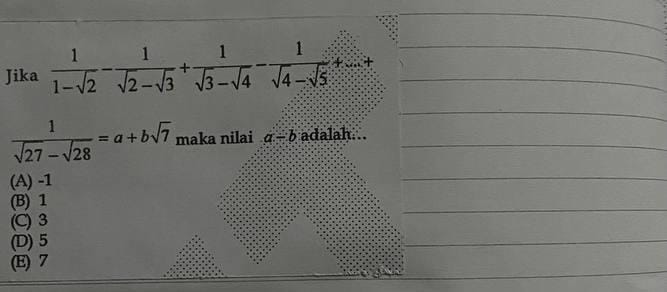 Jika 1/(1−√2) − 1/(√2−√3) + 1/(√3−√4) − 1/(√4−√5) + .... +
1/(√27−√28) = a + b√7 maka nilai a−b adalah...
(A) -1
(B) 1
(C) 3
(D) 5
(E) 7